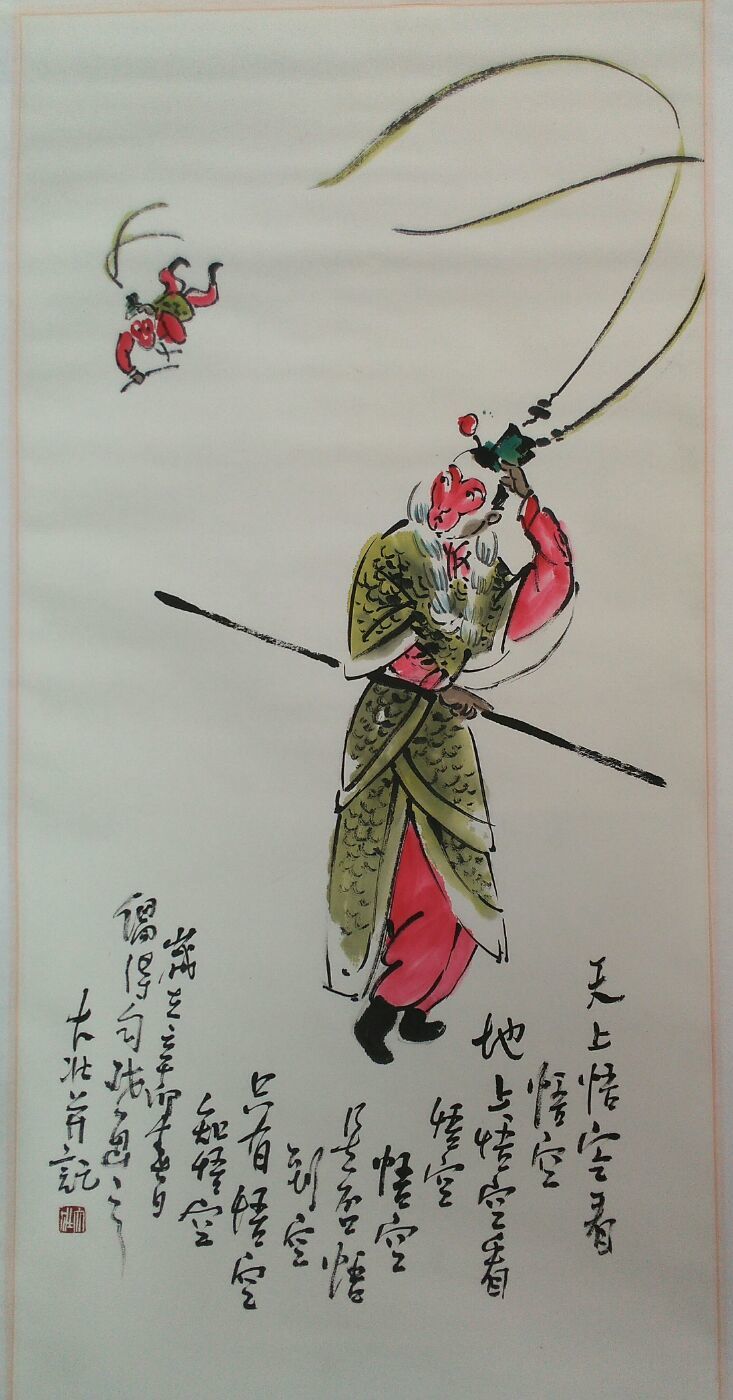 天上悟空看
悟空
地上悟空看
悟空
悟空
是否悟
到空
只有悟空
知悟空
歲在辛卯春日
偶得句戏画之
大壮并記